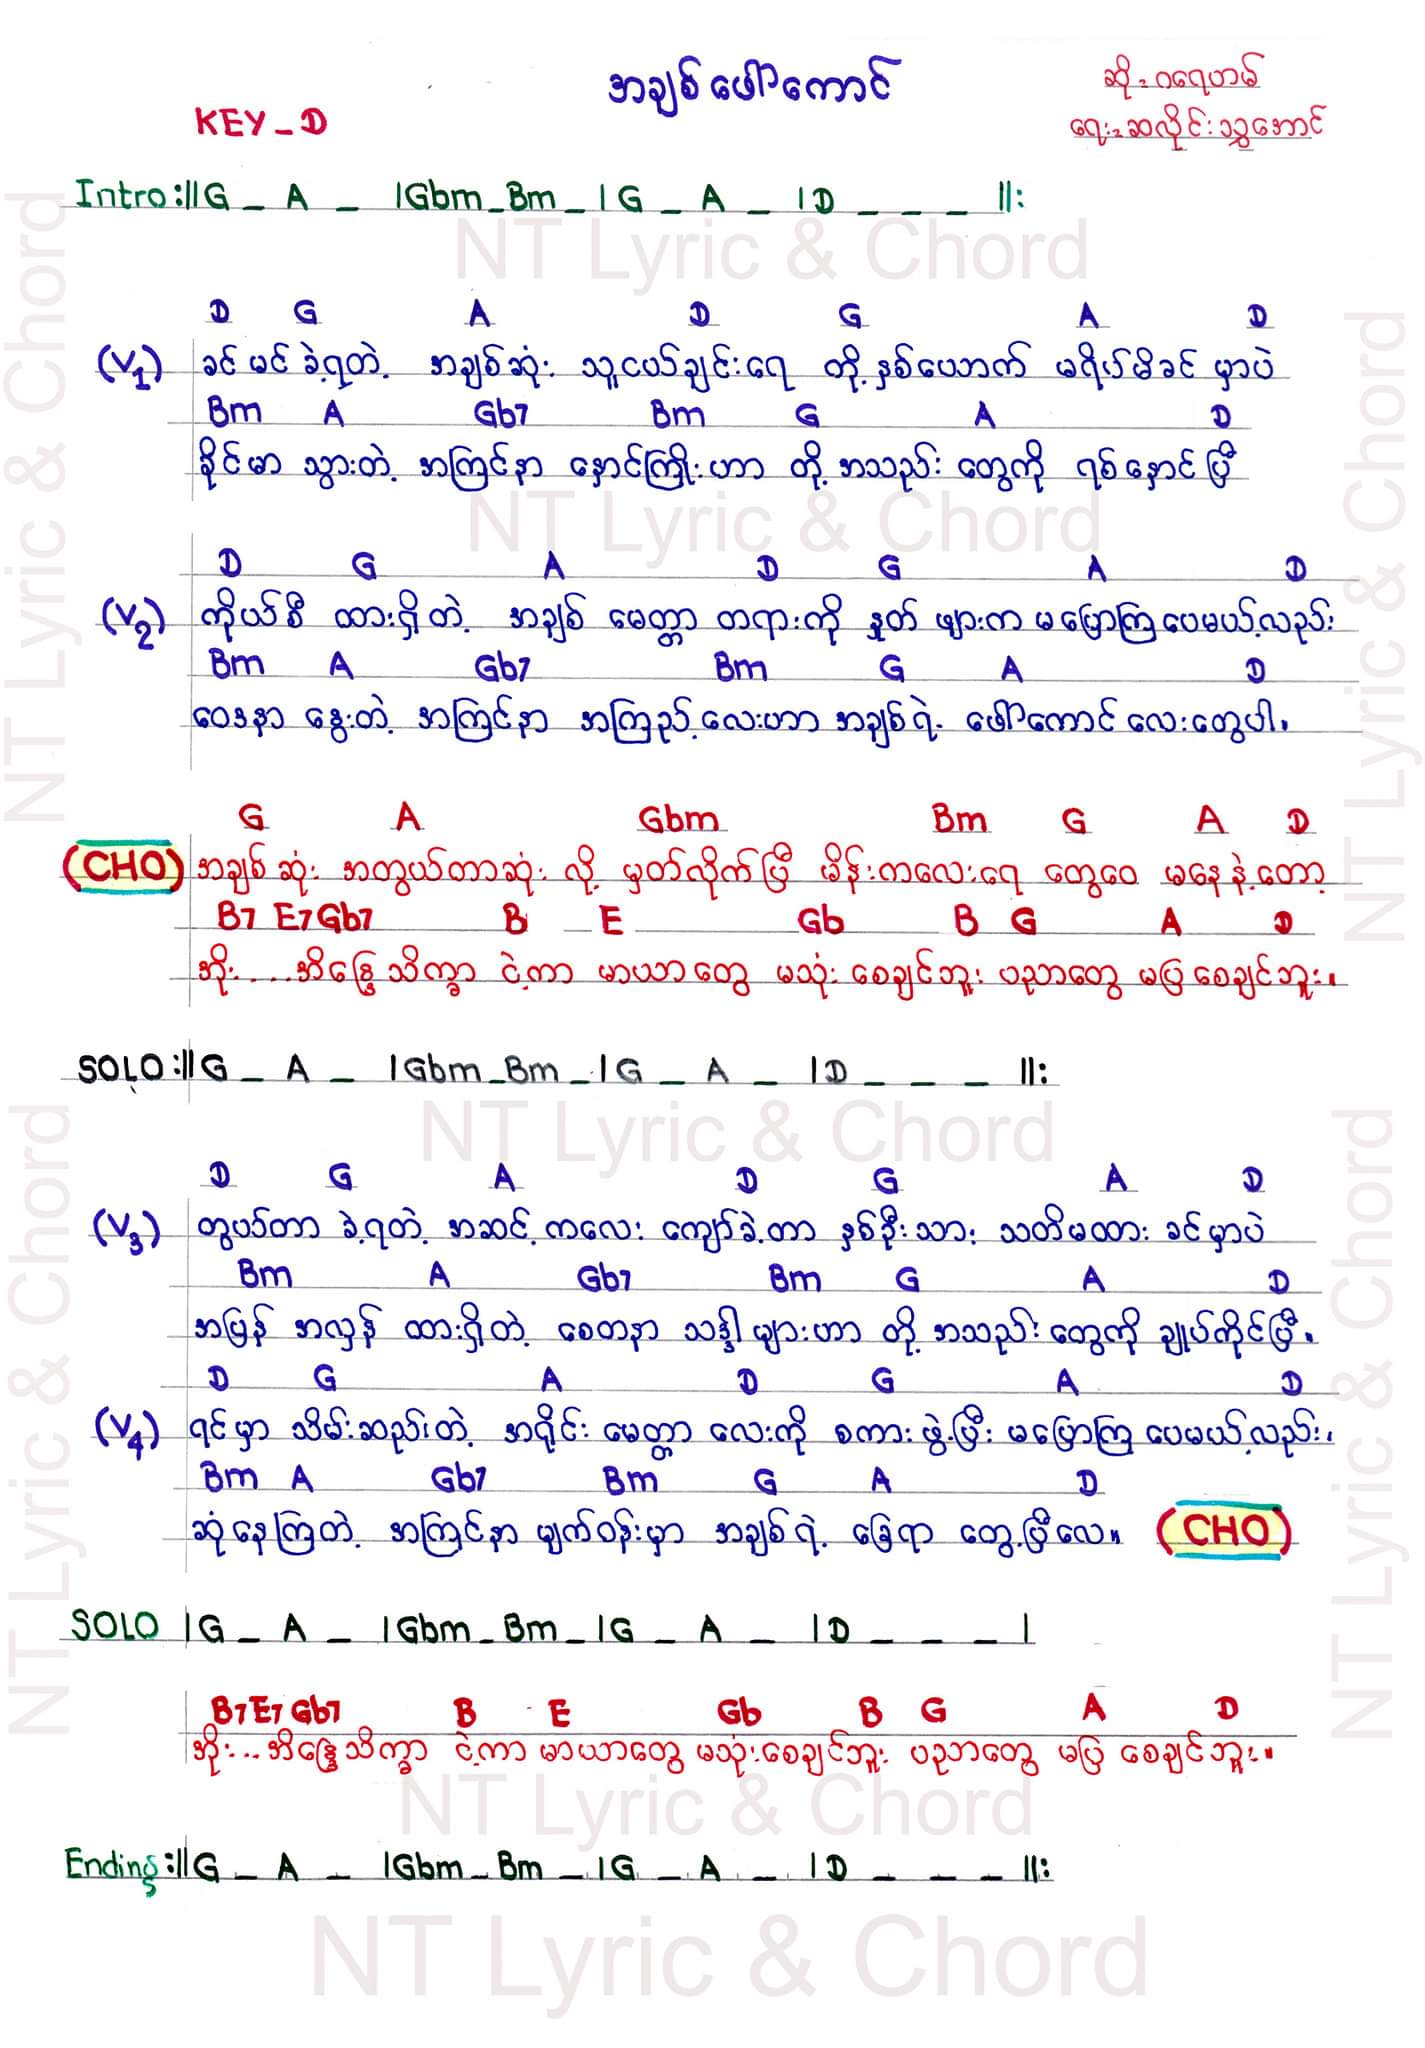 အချစ်ဖေါ်ကောင်
ဆို=ဂရေဟမ်
KEY_D
ရေး=ဆလိုင်းသွအောင်
Intro:||G _ A _ |Gbm_Bm_|G _ A _ |D _ _ _ ||:
D G A D G A D
(V1) ခင်မင်ခဲ့ရတဲ့ အချစ်ဆုံး သူငယ်ချင်းရေ တို့နှစ်ယောက် မရိပ်မိခင်မှာပဲ
Bm A Gb7 Bm G A D
ခိုင်မာသွားတဲ့ အကြင်နာ နှောင်ကြိုးဟာ တို့အသည်းတွေကို ရစ်နှောင်ပြီ
D G A D G A D
(V2) ကိုယ်စီ ထားရှိတဲ့ အချစ် မေတ္တာ တရားကို နှုတ်ဖျားက မပြောကြပေမယ့်လည်း
Bm A Gb7 Bm G A D
ဝေဒနာ နွေးတဲ့ အကြင်နာ အကြည့်လေးဟာ အချစ်ရဲ့ ဖေါ်ကောင်လေးတွေပါ။
G A Gbm Bm G A D
(CHO) အချစ်ဆုံး အတွယ်တာဆုံး လို့ မှတ်လိုက်ပြီ မိန်းကလေးရေ တွေဝေ မနေနဲ့တော့
B7 E7 Gb7 B E Gb B G A D
အိုး....အိန္ဒြေသိက္ခာ ငဲ့ကာ မာယာတွေ မသုံးစေချင်ဘူး ပညာတွေ မပြစေချင်ဘူး။
SOLO:||G _ A _ |Gbm_Bm_|G _ A _ |D _ _ _ ||:
D G A D G A D
(V3) တွယ်တာခဲ့ရတဲ့ အဆင့်ကလေး ကျော်ခဲ့တာ နှစ်ဦးသား သတိမထားခင်မှာပဲ
Bm A Gb7 Bm G A D
အပြန် အလှန် ထားရှိတဲ့ စေတနာ သဒ္ဒါများဟာ တို့အသည်းတွေကို ချုပ်ကိုင်ပြီ။
D G A D G A D
(V4) ရင်မှာ သိမ်းဆည်းတဲ့ အရိုင်း မေတ္တာလေးကို စကားဖွဲ့ပြီး မပြောကြပေမယ့်လည်း၊
Bm A Gb7 Bm G A D
ဆုံနေကြတဲ့ အကြင်နာ မျက်ဝန်းမှာ အချစ်ရဲ့ ခြေရာ တွေ့ပြီလေ။ (CHO)
SOLO |G _ A _ |Gbm_Bm_|G _ A _ |D _ _ _ |
B7 E7 Gb7 B E Gb B G A D
အိုး...အိန္ဒြေသိက္ခာ ငဲ့ကာ မာယာတွေ မသုံးစေချင်ဘူး ပညာတွေ မပြစေချင်ဘူး။
Ending:||G _ A _ |Gbm_Bm_|G _ A _ |D _ _ _ ||:
NT Lyric & Chord